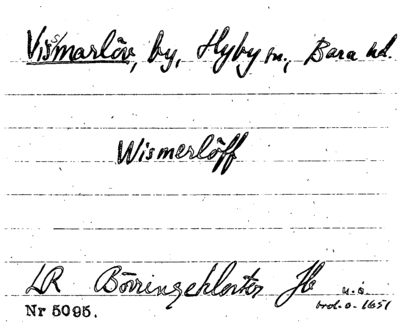 Vissmarlöv, by, Hyby sn., Bara hd.
Wismerlöff
LR Börringekloster Jb u.å.
Nr 5095.